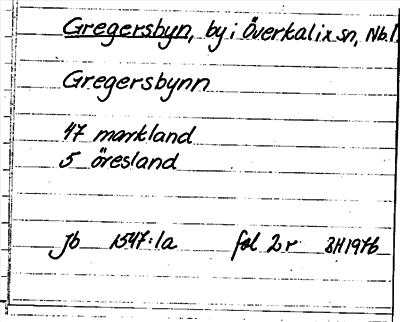 Gregersbyn, by i Överkalix sn, Nb.l.
Gregersbynn
47 markland
5 öresland
jb 1547:1a fol 2r BH1976